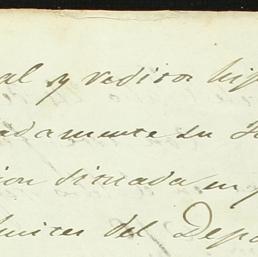 al y redito hip
adamente su
cion situada en
del Depo